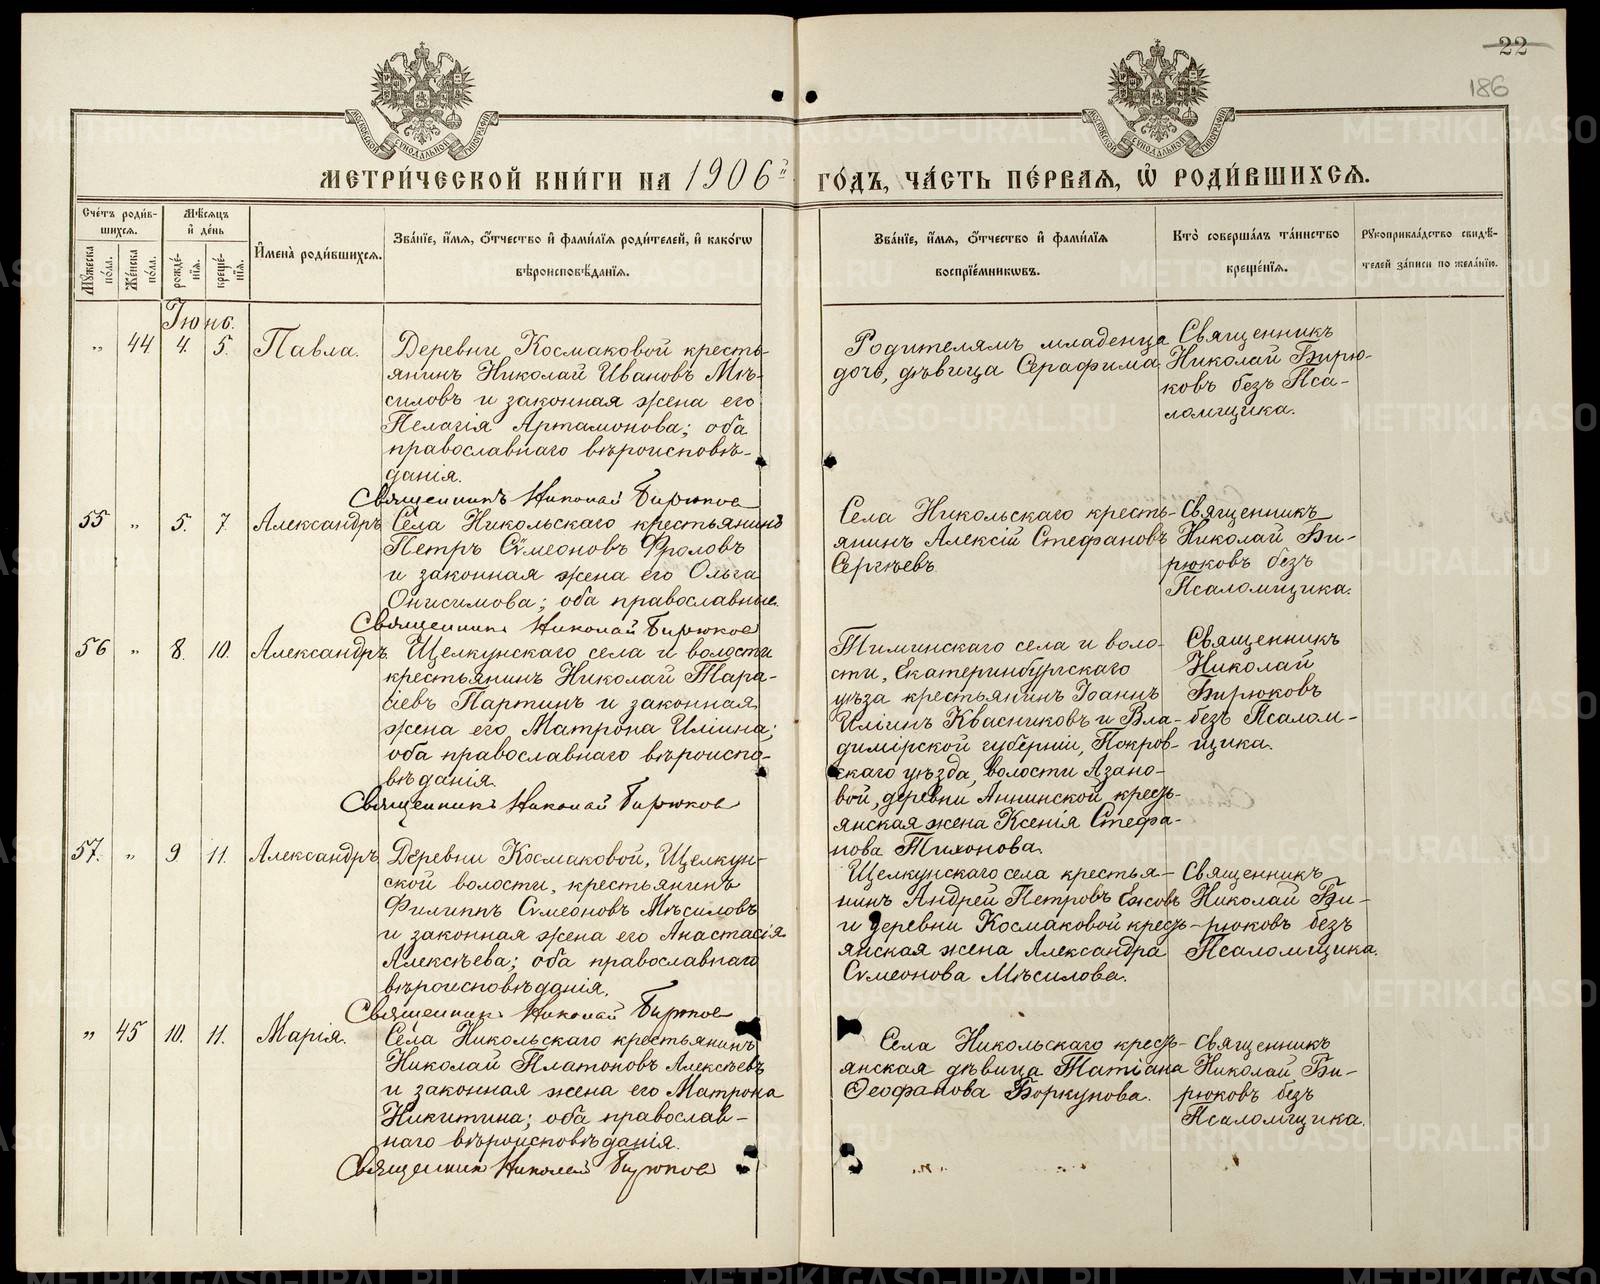 22
186
МОСКОВСКОЙ СѴНОДАЛЬНОЙ ТИПОГРАФІИ
МОСКОВСКОЙ СѴНОДАЛЬНОЙ ТИПОГРАФІИ
МЕТРИ́ЧЕСКОЙ КНИ́ГИ НА 1906й ГО́ДЪ, ЧА́СТЬ ПЕ́РВАѦ, Ѡ҆ РОДИ́ВШИХСѦ.
Сче́тъ роди́в-
шихсѧ.
Мꙋ́жеска по́ла.
Же́нска по́ла.
Мѣ́сѧцъ
и҆ де́нь
рожде́-
нїѧ.
креще́-
нїѧ.
И҆мена̀ роди́вшихсѧ.
Зва́нїе, и҆́мѧ, ѻ҆́тчество и҆ фами́лїѧ роди́телей, и҆ како́гѡ
вѣроисповѣ́данїѧ.
Зва́нїе, и҆́мѧ, ѻ҆́тчество и҆ фами́лїѧ
воспрїе́мникѡвъ.
Кто̀ соверша́лъ та́инство
креще́нїѧ.
Рꙋкоприкла́дство свидѣ́-
телей за́писи по жела́нїю.
Іюнь.
„ 44 4. 5. Павла.
Деревни Космаковой кресть-
янинъ Николай Ивановъ Мѣ-
силовъ и законная жена его
Пелагія Артамонова; оба
православнаго вѣроисповѣ-
данія.
Священникъ Николай Бирюков
Родителямъ младенца
дочь, дѣвица Серафима
Священникъ
Николай Бирю-
ковъ безъ Пса-
ломщика.
55 „ 5. 7. Александръ
Села Никольскаго крестьянинъ
Петръ Сѵмеоновъ Фроловъ
и законная жена его Ольга
Онисимова; оба православные.
Священникъ Николай Бирюков
Села Никольскаго кресть-
янинъ Алексій Стефановъ
Сергѣевъ
Священникъ
Николай Би-
рюковъ безъ
Псаломщика.
56 „ 8. 10. Александръ.
Щелкунскаго села и волости
крестьянинъ Николай Тара-
сіевъ Партинъ и законная
жена его Матрона Иліина;
оба православнаго вѣроиспо-
вѣданія.
Священникъ Николай Бирюков
Тиминскаго села и воло-
сти, Екатеринбургскаго
уѣза крестьянинъ Іоаннъ
Иліинъ Квасниковъ и Вла-
димірской губерніи, Покров-
скаго уѣзда, волости Язано-
вой, деревни Аннинской кресть-
янская жена Ксенія Стефа-
нова Тихонова.
Священникъ
Николай
Бирюковъ
безъ Псалом-
щика.
57. „ 9 11. Александръ
Деревни Космаковой, Щелкун-
ской волости, крестьянинъ
Филиппъ Сѵмеоновъ Мѣсиловъ
и законная жена его Анастасія
Алексѣева; оба православнаго
вѣроисповѣданія.
Священникъ Николай Бирюков
Щелкунскаго села крестья-
нинъ Андрей Петровъ Ежовъ
и деревни Космаковой кресть-
янская жена Александра
Сѵмеонова Мѣсилова.
Священникъ
Николай Би-
рюковъ безъ
Псаломщика.
„ 45 10. 11. Марія.
Села Никольскаго крестьянинъ
Николай Платоновъ Алексѣевъ
и законная жена его Матрона
Никитина; оба православ-
наго вѣроисповѣданія.
Священникъ Николай Бирюков
Села Никольскаго кресть-
янская дѣвица Татіана
Ѳеофанова Боркунова.
Священникъ
Николай Би-
рюковъ безъ
Псаломщика.
METRIKI.GASO-URAL.RU